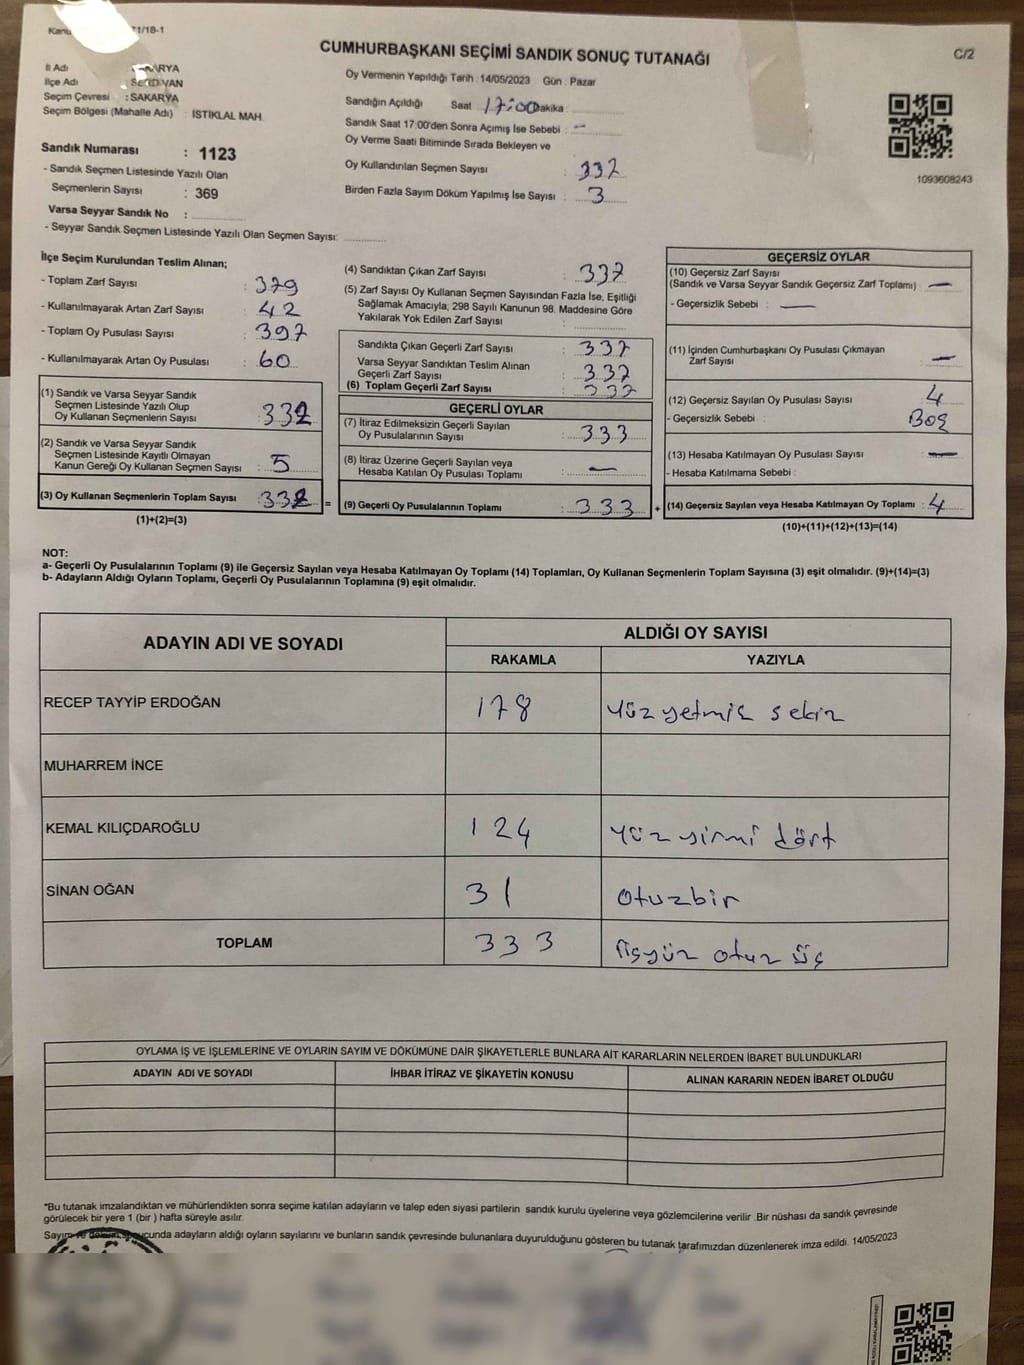 1/18-1
CUMHURBAŞKANI SEÇİMİ SANDIK SONUÇ TUTANAĞI
C/2
İl Adı
İlçe Adı
Seçim Çevresi : SAKARYA
Seçim Bölgesi (Mahalle Adı) : İSTİKLAL MAH.
Sandık Numarası : 1123
- Sandık Seçmen Listesinde Yazılı Olan
Seçmenlerin Sayısı : 369
Varsa Seyyar Sandık No :
- Seyyar Sandık Seçmen Listesinde Yazılı Olan Seçmen Sayısı:
Oy Vermenin Yapıldığı Tarih : 14/05/2023 Gün : Pazar
Sandığın Açıldığı Saat 17:00 Dakika :
Sandık Saat 17:00'den Sonra Açımış İse Sebebi : -
Oy Verme Saati Bitiminde Sırada Bekleyen ve
Oy Kullandırılan Seçmen Sayısı : 337
Birden Fazla Sayım Döküm Yapılmış İse Sayısı : 3
1093608243
İlçe Seçim Kurulundan Teslim Alınan;
- Toplam Zarf Sayısı : 379
- Kullanılmayarak Artan Zarf Sayısı : 42
- Toplam Oy Pusulası Sayısı : 397
- Kullanılmayarak Artan Oy Pusulası : 60
(1) Sandık ve Varsa Seyyar Sandık
Seçmen Listesinde Yazılı Olup
Oy Kullanan Seçmenlerin Sayısı : 332
(2) Sandık ve Varsa Seyyar Sandık
Seçmen Listesinde Kayıtlı Olmayan
Kanun Gereği Oy Kullanan Seçmen Sayısı : 5
(3) Oy Kullanan Seçmenlerin Toplam Sayısı :
(1)+(2)=(3)
=
(4) Sandıktan Çıkan Zarf Sayısı : 337
(5) Zarf Sayısı Oy Kullanan Seçmen Sayısından Fazla İse, Eşitliği
Sağlamak Amacıyla, 298 Sayılı Kanunun 98. Maddesine Göre
Yakılarak Yok Edilen Zarf Sayısı :
Sandıkta Çıkan Geçerli Zarf Sayısı : 337
Varsa Seyyar Sandıktan Teslim Alınan
Geçerli Zarf Sayısı : 337
(6) Toplam Geçerli Zarf Sayısı : 337
GEÇERLİ OYLAR
(7) İtiraz Edilmeksizin Geçerli Sayılan
Oy Pusulalarının Sayısı : 333
(8) İtiraz Üzerine Geçerli Sayılan veya
Hesaba Katılan Oy Pusulası Toplamı : -
(9) Geçerli Oy Pusulalarının Toplamı : 333
+
GEÇERSİZ OYLAR
(10) Geçersiz Zarf Sayısı
(Sandık ve Varsa Seyyar Sandık Geçersiz Zarf Toplamı) : -
- Geçersizlik Sebebi : -
(11) İçinden Cumhurbaşkanı Oy Pusulası Çıkmayan
Zarf Sayısı : -
(12) Geçersiz Sayılan Oy Pusulası Sayısı : 4
- Geçersizlik Sebebi : BOŞ
(13) Hesaba Katılmayan Oy Pusulası Sayısı : -
- Hesaba Katılmama Sebebi :
(14) Geçersiz Sayılan veya Hesaba Katılmayan Oy Toplamı : 4
(10)+(11)+(12)+(13)=(14)
NOT:
a- Geçerli Oy Pusulalarının Toplamı (9) ile Geçersiz Sayılan veya Hesaba Katılmayan Oy Toplamı (14) Toplamları, Oy Kullanan Seçmenlerin Toplam Sayısına (3) eşit olmalıdır. (9)+(14)=(3)
b- Adayların Aldığı Oyların Toplamı, Geçerli Oy Pusulalarının Toplamına (9) eşit olmalıdır.
ADAYIN ADI VE SOYADI
ALDIĞI OY SAYISI
RAKAMLA YAZIYLA
RECEP TAYYİP ERDOĞAN 178 Yüz yetmiş sekiz
MUHARREM İNCE
KEMAL KILIÇDAROĞLU 124 Yüz yirmi dört
SİNAN OĞAN 31 Otuzbir
TOPLAM 333 Üçyüz otuz üç
OYLAMA İŞ VE İŞLEMLERİNE VE OYLARIN SAYIM VE DÖKÜMÜNE DAİR ŞİKAYETLERLE BUNLARA AİT KARARLARIN NELERDEN İBARET BULUNDUKLARI
ADAYIN ADI VE SOYADI İHBAR İTİRAZ VE ŞİKAYETİN KONUSU ALINAN KARARIN NEDEN İBARET OLDUĞU
*Bu tutanak imzalandıktan ve mühürlendikten sonra seçime katılan adayların ve talep eden siyasi partilerin sandık kurulu üyelerine veya gözlemcilerine verilir .Bir nüshası da sandık çevresinde
görülecek bir yere 1 (bir ) hafta süreyle asılır.
Sayım adayların aldığı oyların sayılarını ve bunların sandık çevresinde bulunanlara duyurulduğunu gösteren bu tutanak tarafımızdan düzenlenerek imza edildi. 14/05/2023